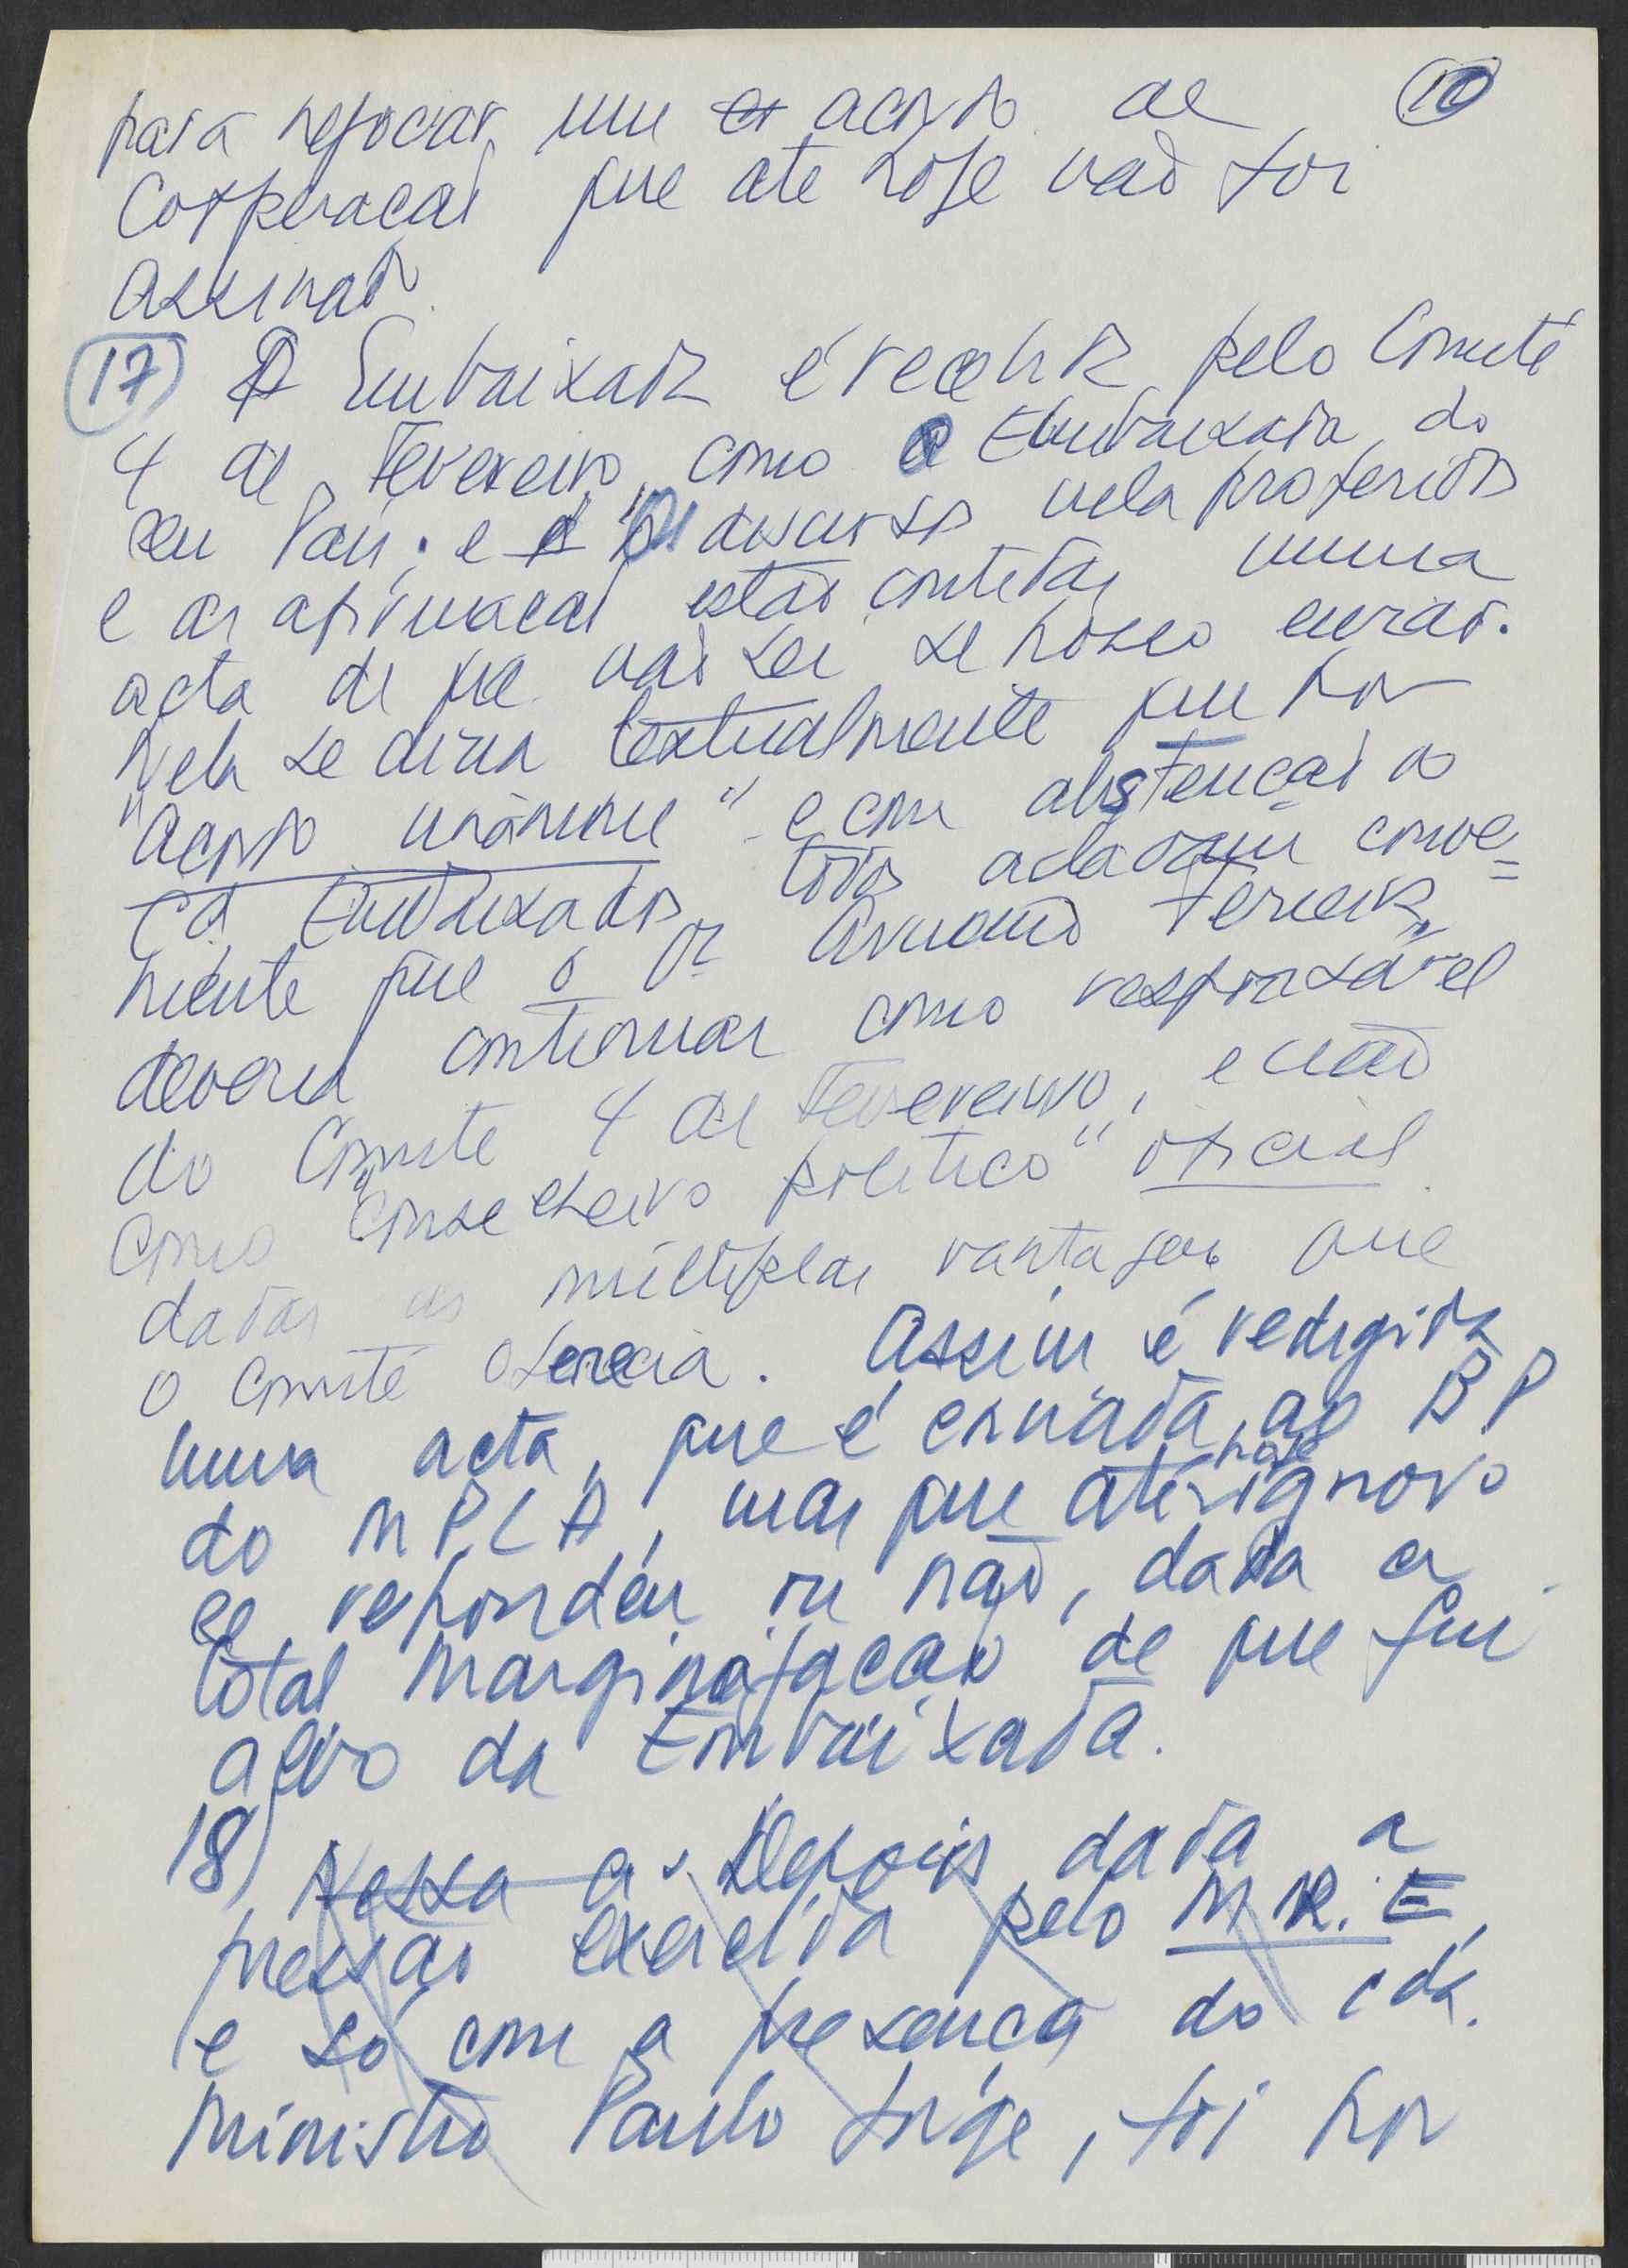 10
para negociar um acordo de
Cooperação que até hoje não foi
assinado.
17) Embaixador é recebido pelo Comité
4 de Fevereiro como a Embaixada do
seu País; e Os discursos nela proferidos
e as afirmações estão contidas numa
acta de que não sei se posso enviar.
Nela se dizia textualmente que por
"acordo unânime" e com abstenção do
Cda Embaixador todos achavam conve=
niente que o Dr Armando Ferreira
deveria continuar como responsável
do Comité 4 de Fevereiro, e não
como "Conselheiro politico" oficial
dadas as múltiplas vantagens que
o Comité oferecia. Assim é redigida
numa acta, que é enviada ao BP
do MPLA, mas que até hoje ignoro
se responderam ou não, dada a
total marginalização de que fui
alvo da Embaixada.
18) Nessa a Depois dada a
pressão exercida pelo M.R.E,
e só com a presença do cda.
Ministro Paulo Jorge, foi por